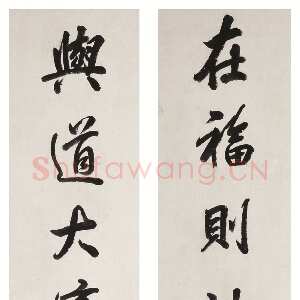 在福則
與道大
Shufawang.CN